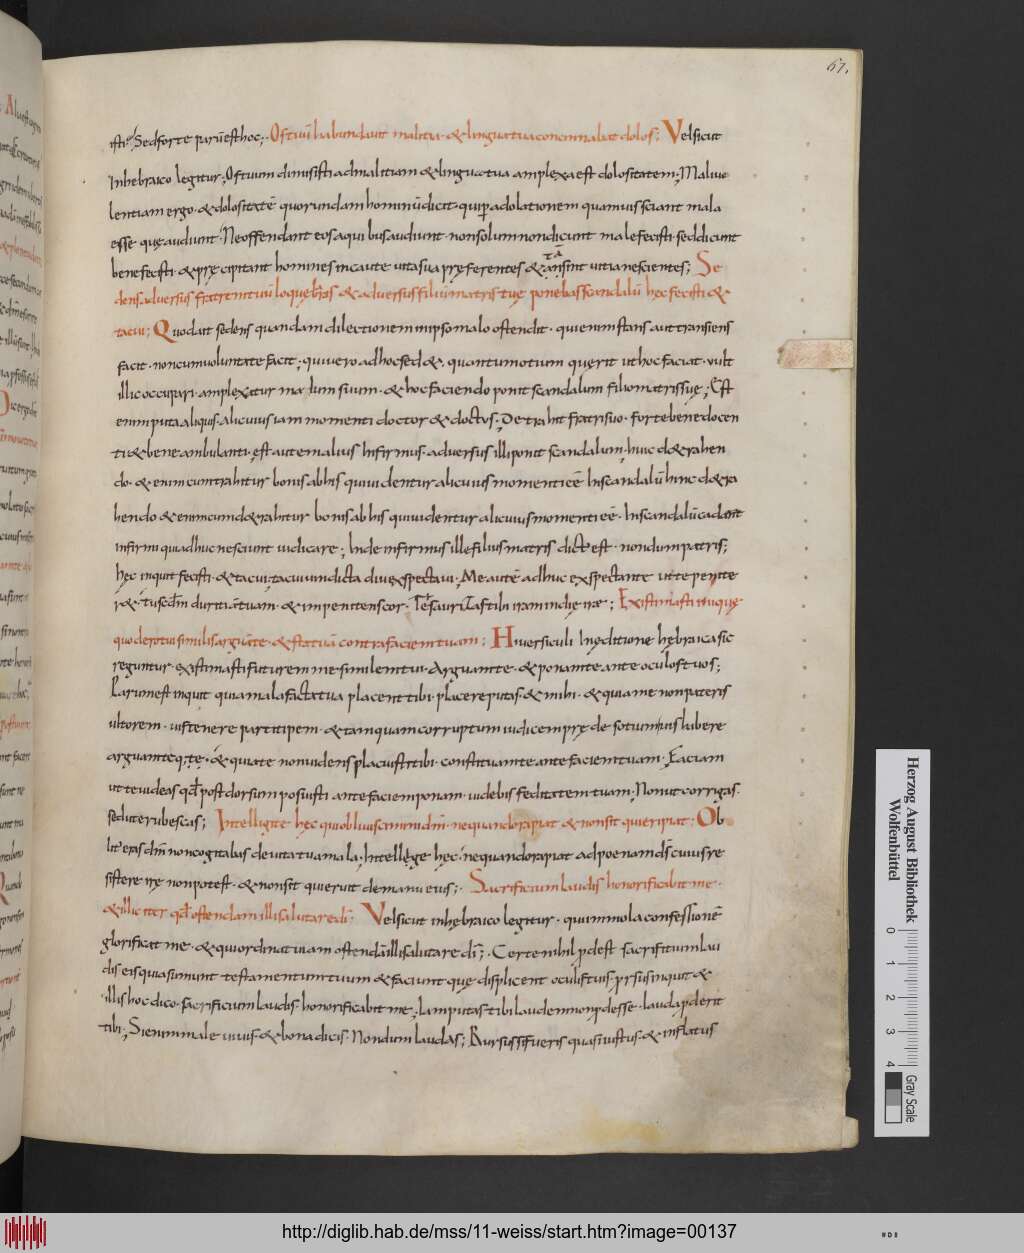 67.
isti; Sed forte parū est hoc;. Os tuū habundauit malitia · & lingua tua concinnabat dolos; Vel sicut
in hebraico legitur; Os tuum dimisisti ad malitiam & lingua tua amplexa est dolositatem; Maliuo
lentiam ergo · & dolositatē quorundam hominū dicit · qui p adolationem quamuis sciant mala
esse quę audiunt · Ne offendant eos a quibus audiunt · non solum non dicunt male fecisti · sed dicunt
bene fecisti · & pręcipitant homines incaute uitia sua pręferentes & transsint uitia nescientes; Se
dens aduersus fratrem tuū loquebaris & aduersus filiū matris tuę ponebas scandalū hęc fecisti &
tacui; Quod ait sedens quandam dilectionem in ipso malo ostendit · qui enim stans aut transiens
facit · non cum uoluntate facit; qui uero ad hoc sed& · quantum otium quęrit ut hoc faciat · uult
illic occupari · amplexatur malum suum · & hoc faciendo ponit scandalum filio matris suę; Est
enim puta aliquis · alicuius iam momenti doctor & doctus; Detrahit fratri suo · forte bene docen
ti & bene ambulanti; est autem alius infirmus · aduersus illi ponit scandalum; hunc d&rahen
do · & enim cum trahitur bonis ab his qui uidentur alicuius momenti eē In scandalū hunc d&ra
hendo & enim cum d&rahitur bonis ab his qui uidentur alicuius momenti eē · In scandalū cadunt
infirmi qui adhuc nesciunt iudicare; Inde infirmus ille filius matris dictꝰ est · nondum patris;
hęc inquit fecisti · & tacui; tacui uindicta diu exspectaui; Me autē adhuc exspectante ut te penite
Existimasti inique
quod ero tui similis arguā te · & statuā contra faciem tuam; Hi uersiculi In editione hębraica sic
reguntur · existimasti futurem me similem tui · Arguam te · & ponam te ante oculos tuos;
Parum est inquit quia mala facta tua placent tibi · placere putas · & mihi · & quia me non pateris
ultorem · uis tenere participem · & tamquam corruptum iudicem pręde socium uis habere
constituam te ante faciem tuam; Faciam
ut te uideas qđ post dorsum posuisti ante faciem ponam · uidebis feditatem tuam; Non ut corrigas
sed ut erubescas; Intelligite hęc qui obliuiscimini dm̄ · ne quando rapiat & non sit qui eripiat; Ob
litꝰ eras dm̄ non cogitabas de uita tua mala; Intellege hęc · ne quando rapiat ad poenam ds̄ cuius re
sistere irę non potest · & non sit qui eruit de manu eius;. Sacrificium laudis honorificabit me ·
& illic iter qđ ostendam illi salutare dī · Vel sicut in hębraico legitur · qui immola confessionē
glorificat me · & qui ordinat uiam ostendā illi salutare dī; · Certe nihil pdest sacrificium lau
dis eis qui assumunt testamentum tuum & faciunt quę displicent oculis tuis · prsus inquit &
illis hoc dico · sacrificium laudis honorificabit me; Iam putas tibi laudem non pdesse · laudā pderit
tibi; Si enim male uiuis · & bona dicis · Nondum laudas; Rursus si fueris quasi iustus · & inflatus
Herzog August Bibliothek
Wolfenbüttel
0 1 2 3 4
Gray Scale
http://diglib.hab.de/mss/11-weiss/start.htm?image=00137